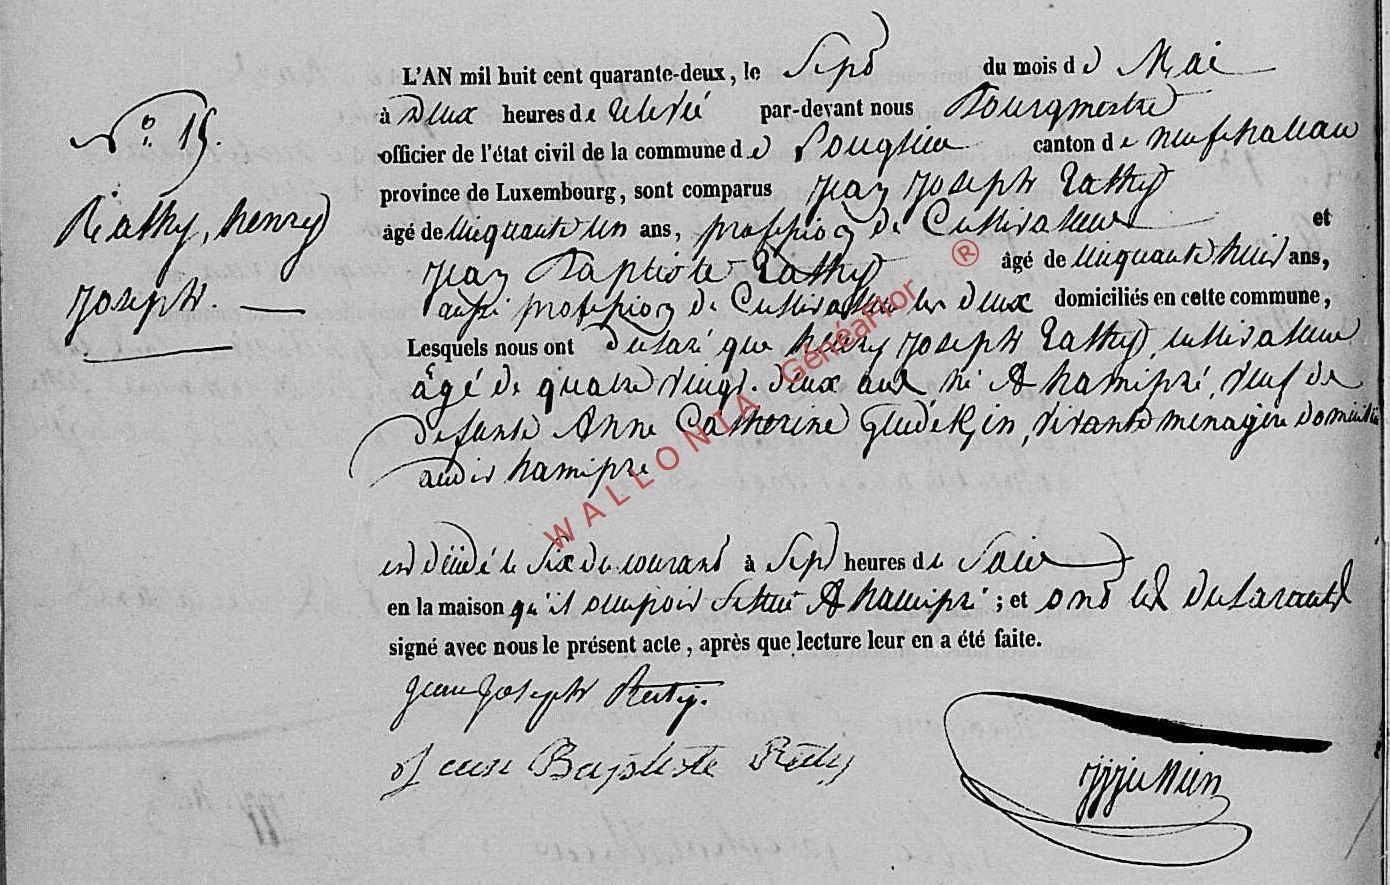 N.° 15.
Rathy, henry
joseph.
L'AN mil huit cent quarante-deux, le Sept du mois de Mai
à Deux heures de relevé par-devant nous Bourgmestre
officier de l'état civil de la commune de canton de neufchateau
province de Luxembourg, sont comparus jean joseph Rathy
âgé de cinquante un ans, profession de Cultivateur et
jean Baptiste Rathy âgé de cinquante huit ans,
aussi profession de Cultivateur les deux domiciliés en cette commune,
Lesquels nous ont declaré que henry joseph Rathy, cultivateur
âgé de quatre vingt-deux ans, né A hamipré, veuf de
defunte Anne Catherine, vivante menagere domicilié
audit hamipré
est décédé le Six du courant à Sept heures de Soir
en la maison qu'il occupoit Situé A hamipré ; et ont les declarants
signé avec nous le présent acte, après que lecture leur en a été faite.
jean joseph Rathy.
jean Baptiste Rathy
WALLONIA Généaflor ®